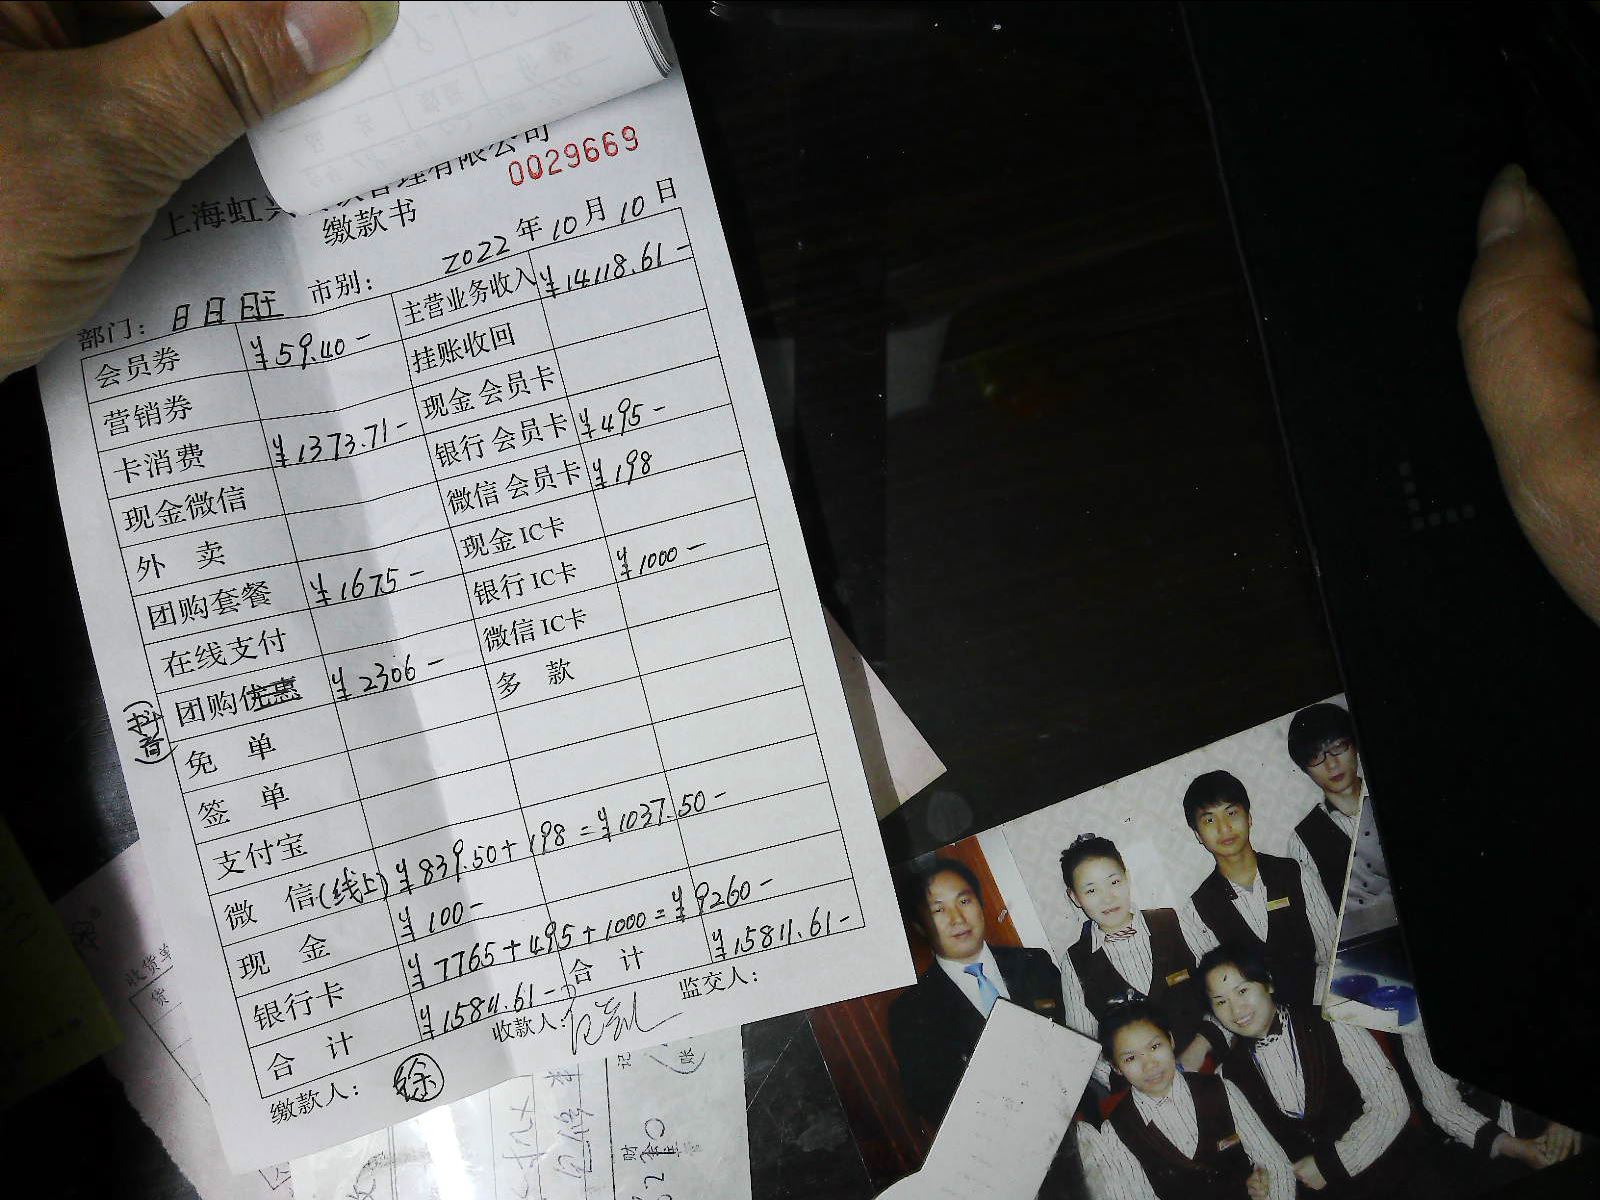 0029669
上海虹兴 管理有限公司
缴款书
2022 年 10 月 10 日
部门: 日日旺 市别:
会员券 ¥59.40- 主营业务收入 ¥14118.61-
营销券 挂账收回
卡消费 ¥1373.71- 现金会员卡
现金微信 银行会员卡 ¥495-
外 卖 微信会员卡 ¥198
团购套餐 ¥1675- 现金IC卡
在线支付 银行IC卡 ¥1000-
团购优惠 ¥2306- 微信IC卡
(抖音)
免 单 多 款
签 单
支付宝
微 信(线上) ¥839.50+198=¥1037.50-
现 金 ¥100-
银行卡 ¥7765+495+1000=¥9260-
合 计 ¥15811.61- 合 计 ¥15811.61-
缴款人: 徐 收款人: 监交人:
收货单
货
记
账
财